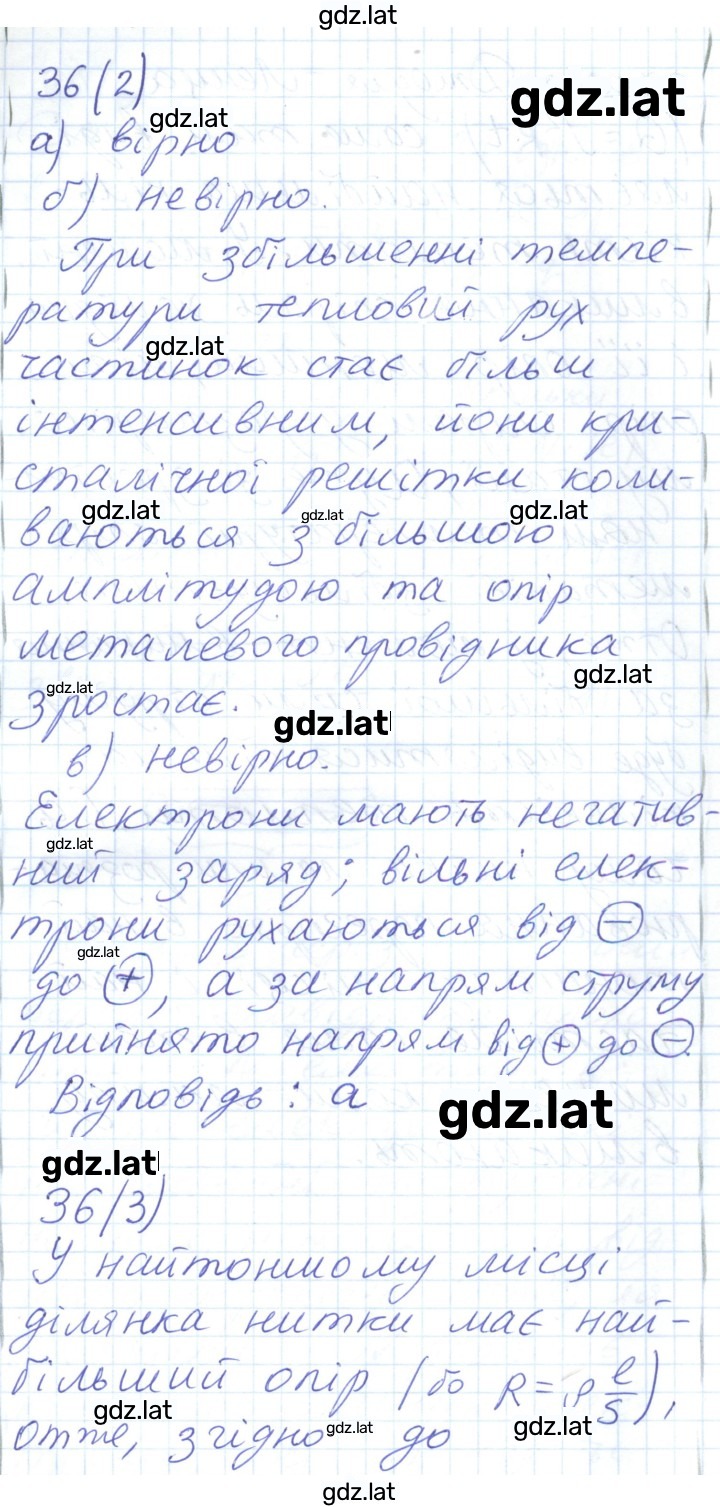 gdz.lat
36(2)
gdz.lat
gdz.lat
а) вірно
б) невірно.
При збільшенні темпе-
ратури тепловий рух
gdz.lat
частинок стає більш
інтенсивним, йони кри-
сталічної решітки коли-
gdz.lat gdz.lat gdz.lat
ваються з більшою
амплітудою та опір
металевого провідника
gdz.lat
gdz.lat
зростає.
gdz.lat
в) невірно.
Електрони мають негатив-
gdz.lat
ний заряд; вільні елек-
трони рухаються від ⊖
gdz.lat
до ⊕, а за напрям струму
прийнято напрям від ⊕ до ⊖.
Відповідь: а
gdz.lat
gdz.lat
36(3)
У найтоншому місці
ділянка нитки має най-
більший опір (бо R = ρ l/S),
gdz.lat
gdz.lat gdz.lat
отже, згідно до
gdz.lat